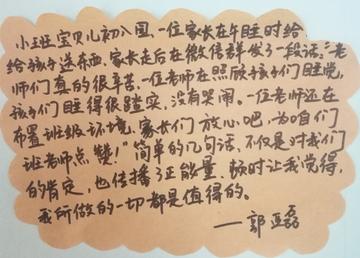 小班宝贝儿初入园,一位家长在午睡时给
给孩子送东西,家长走后在微信群发了一段话:“老
师们真的很辛苦,一位老师在照顾孩子们睡觉,
孩子们睡得很踏实,没有哭闹。一位老师还在
布置班级环境,家长们放心吧,为咱们
班老师点赞!”简单的几句话,不仅是对我们
的肯定,也传播了正能量,顿时让我觉得,
我所做的一切都是值得的。
——郭亚磊